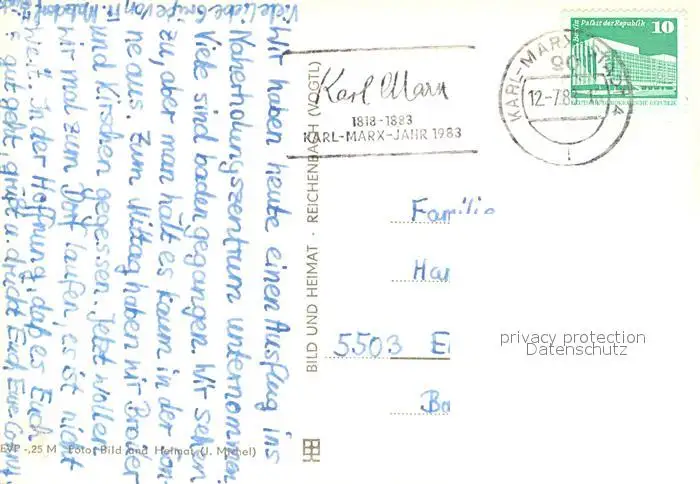 Viele liebe Grüße von Fr.
Wir haben heute einen Ausflug ins
Naherholungszentrum unternommen.
Viele sind baden gegangen. Wir sehen
zu, aber man hält es kaum in der Son-
ne aus. Zum Mittag haben wir Broiler
und Kirschen gegessen. Jetzt wollen
wir mal zum Dorf laufen, es ist nicht
weit. In der Hoffnung, daß es Euch
gut geht, grüßt u. drückt Euch Eure
EVP -,25 M Foto: Bild und Heimat (J. Michel)
BILD UND HEIMAT · REICHENBACH (VOGTL)
Karl Marx
1818-1883
KARL-MARX-JAHR 1983
KARL-MARX-
90
12.-7.8
Berlin, Palast der Republik 10
DEUTSCHE DEMOKRATISCHE REPUBLIK
Familie
Har
5503 El
privacy protection
Datenschutz